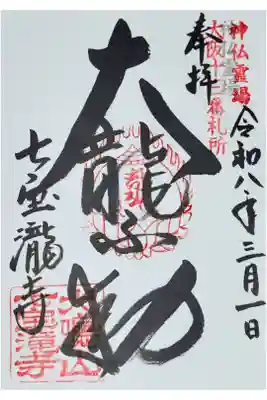 神仏霊場
大阪十三番札所
令和八年三月一日
奉拝
大龍不動
七宝瀧寺
犬鳴山
七宝滝寺